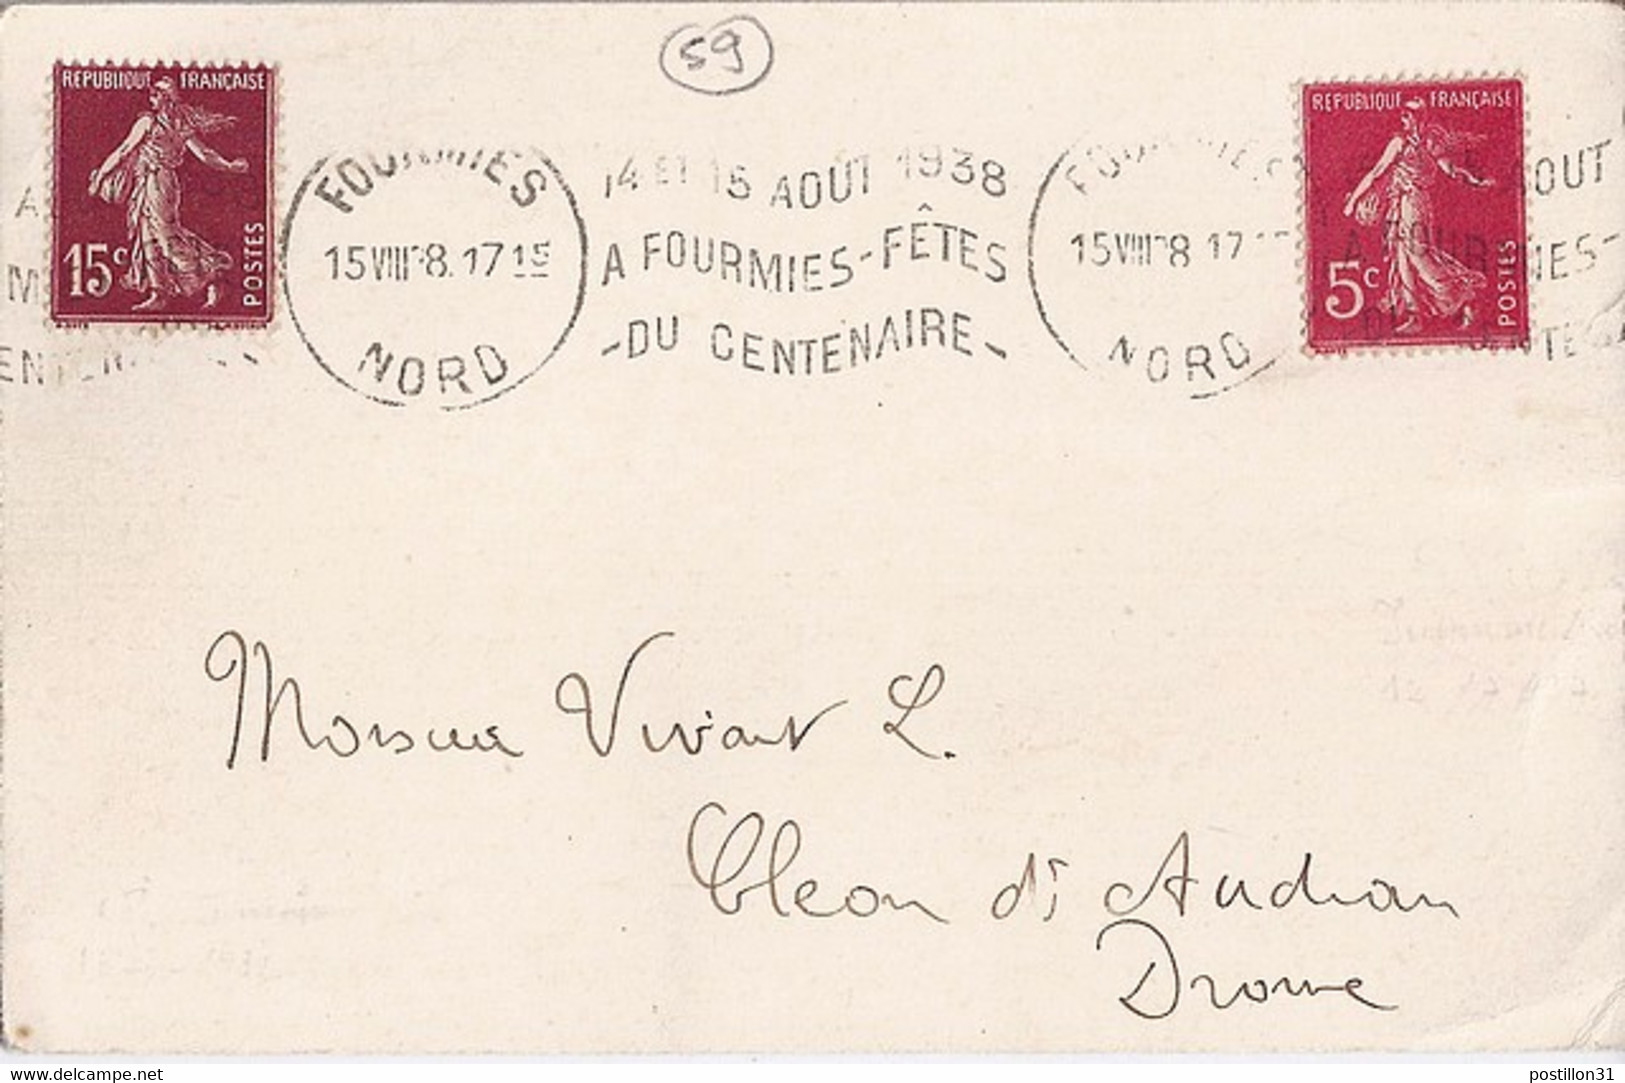 59
REPUBLIQUE FRANÇAISE
15c
POSTES
FOURMIES
15 VIII 38. 17 15
NORD
14 ET 15 AOUT 1938
A FOURMIES-FÊTES
-DU CENTENAIRE-
FOURMIES
15 VIII 38 17
NORD
REPUBLIQUE FRANÇAISE
5c
POSTES
AOUT
A FOURMIES-
Monsieur Vivant L.
Cleon d'Andran
Drome
www.delcampe.net
postillon31